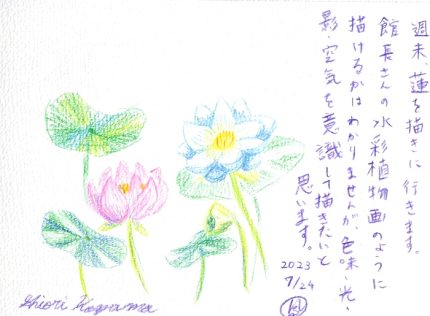 週末、蓮を描きに行きます。
館長さんの水彩植物画のように
描けるかはわかりませんが、色味・光・
影・空気を意識して描きたいと
思います。
2023
7/24
Shiori Koyama